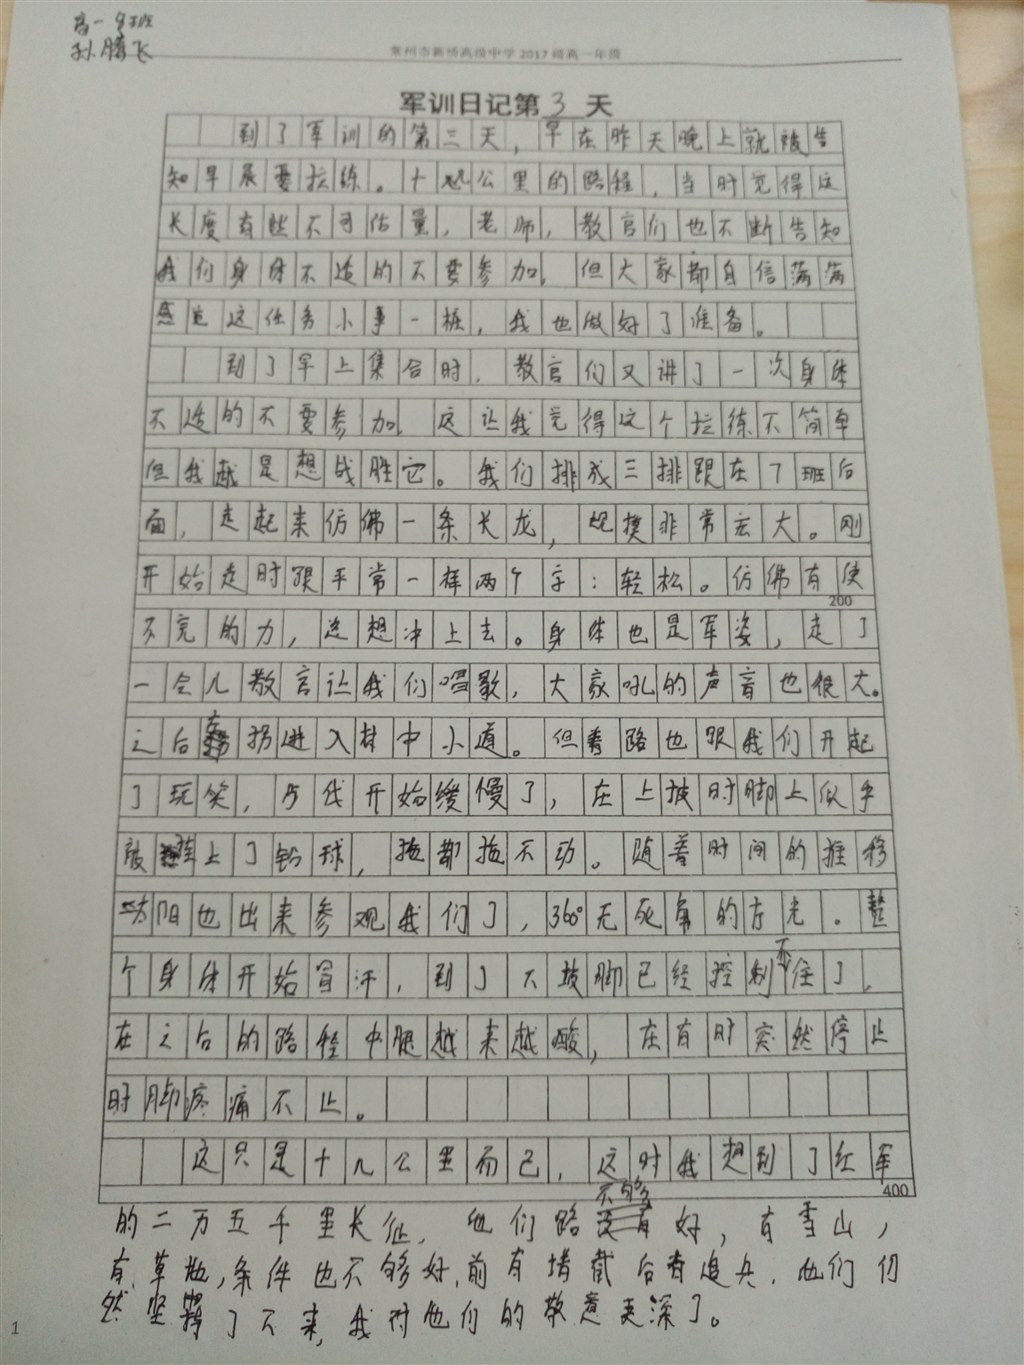 高一 8班
孙腾飞
常州市新桥高级中学 2017 级高一年级
军训日记第 3 天
到了军训的第三天，早在昨天晚上就被告
知早晨要拉练。十几公里的路程，当时觉得这
长度有些不可估量，老师，教官们也不断告知
我们身体不适的不要参加，但大家都自信满满
感觉这任务小事一桩，我也做好了准备。
到了早上集合时，教官们又讲了一次身体
不适的不要参加，这让我觉得这个拉练不简单
但我越是想战胜它。我们排成三排跟在7班后
面，走起来仿佛一条长龙，规模非常宏大。刚
开始走时跟平常一样两个字：轻松。仿佛有使
200
不完的力，总想冲上去。身体也是军姿，走了
一会儿教官让我们唱歌，大家吼的声音也很大。
之后在拐进入林中小道。但路也跟我们开起
了玩笑，步伐开始缓慢了，在上坡时脚上似乎
被挂上了铅球，拖都拖不动。随着时间的推移
太阳也出来参观我们了，360°无死角的方光。整
个身体开始冒汗，到了下坡脚已经控制不住了，
在之后的路程中腿越来越酸，在有时突然停止
时脚疼痛不止。
这只是十几公里而已，这时我想到了红军
400
的二万五千里长征，他们路不够好，有雪山，
有草地，条件也不够好，前有堵截后有追兵，他们仍
然坚持了下来，我对他们的敬意更深了。
1